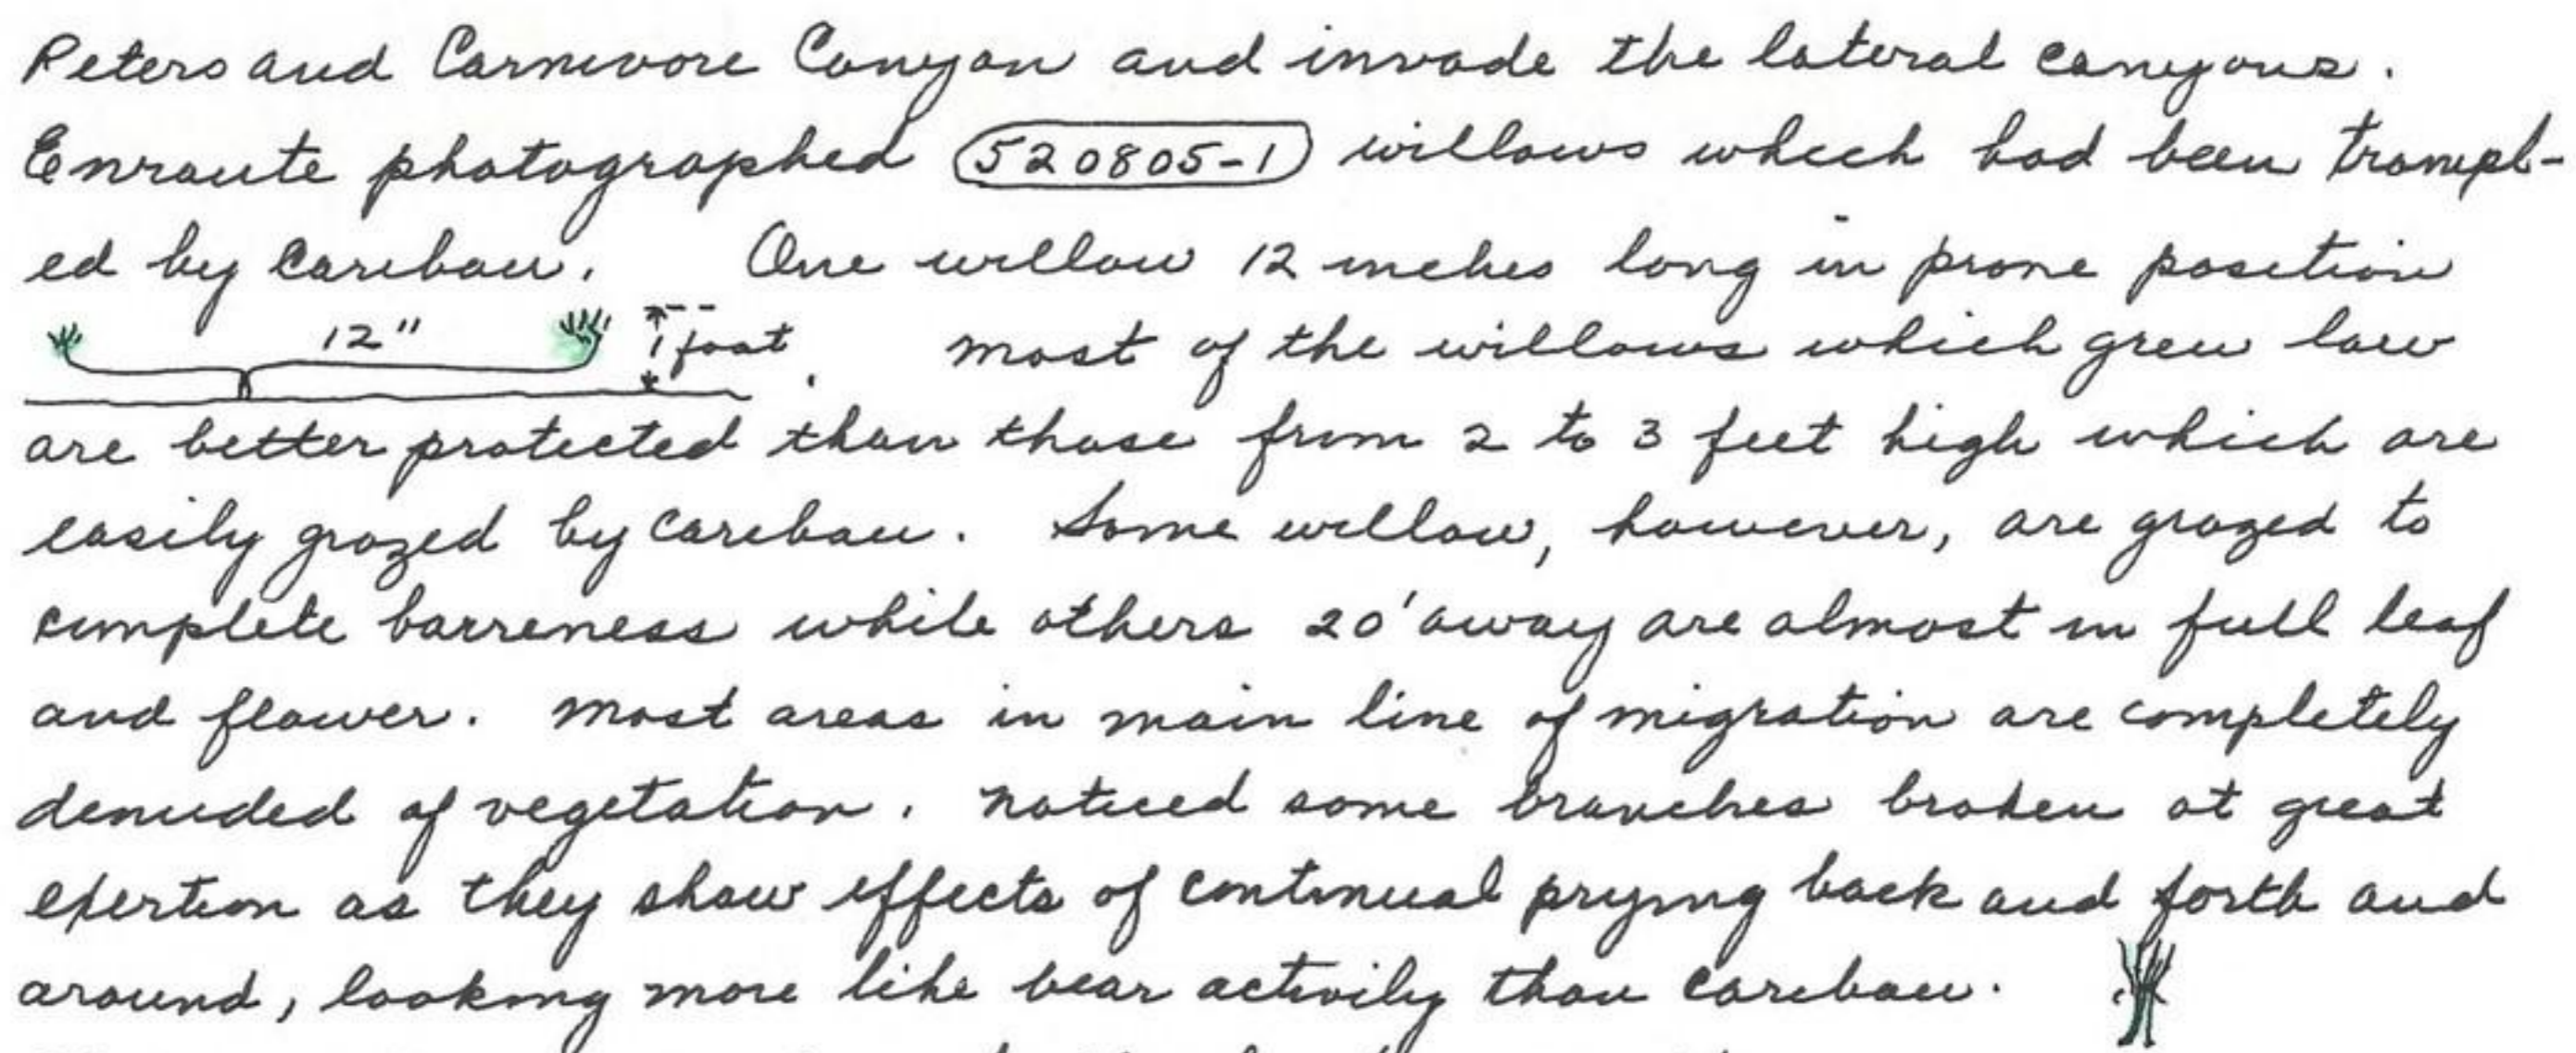 Peters and Carnivore Canyon and invade the lateral canyons.
Enroute photographed 520805-1 willows which had been trampl-
ed by caribou. One willow 12 inches long in prone position
12" 1 foot . most of the willows which grew low
are better protected than those from 2 to 3 feet high which are
easily grazed by caribou. Some willow, however, are grazed to
complete barreness while others 20' away are almost in full leaf
and flower. most areas in main line of migration are completely
denuded of vegetation. noticed some branches broken at great
exertion as they show effects of continual prying back and forth and
around, looking more like bear activity than caribou.